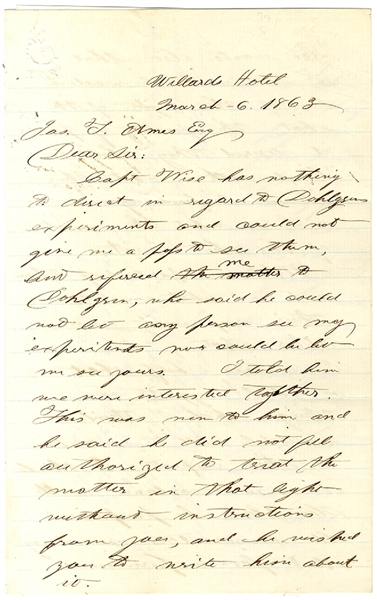 Willards Hotel
March 6. 1863
Jas. T. Ames Esq
Dear Sir:
Capt Wise has nothing
to direct in regard to Dahlgrens
experiments and could not
give me a pass to see them,
and refered me the matter to
Dahlgren, who said he could
not let any person see my
experiments nor could he let
me see yours. I told him
we were interested together.
This was new to him and
he said he did not feel
authorized to treat the
matter in that light
without instructions
from you, and he wished
you to write him about
it.